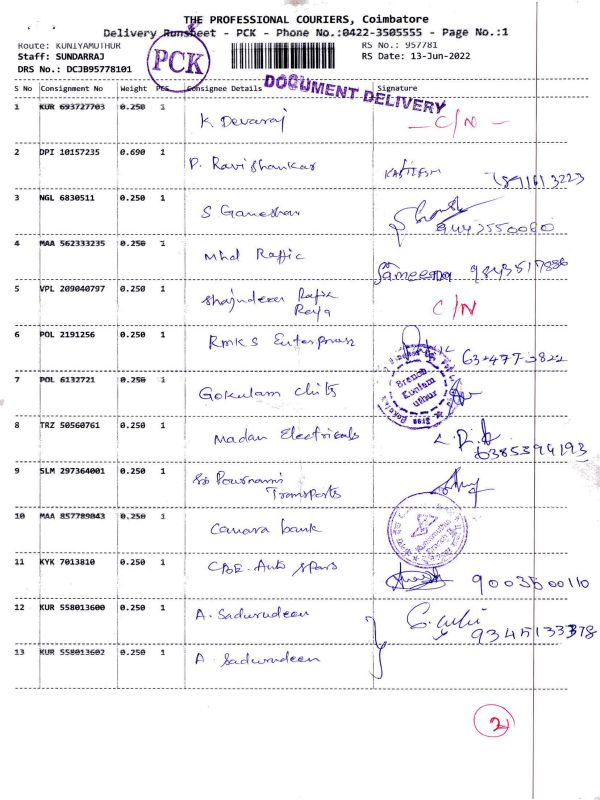 THE PROFESSIONAL COURIERS, Coimbatore
Delivery Runsheet - PCK - Phone No.:0422-3505555 - Page No.:1
Route: KUNIYAMUTHUR RS No.: 957781
Staff: SUNDARRAJ RS Date: 13-Jun-2022
DRS No.: DCJB95778101
PCK
DOCUMENT DELIVERY
S No Consignment No Weight PCS Consignee Details Signature
1 KUR 693727703 0.250 1 K Devaraj - C/N -
2 DPI 10157235 0.690 1 P. Ravi Shankar
3 NGL 6830511 0.250 1 S Ganeshan
4 MAA 562333235 0.250 1 Mhd Raffic Sameema
5 VPL 209040797 0.250 1 Rafik C/N
Raja
6 POL 2191256 0.250 1 RMKS Enterprises
7 POL 6132721 0.250 1 Gokulam chits
Branch
8 TRZ 50560761 0.250 1 Madan Electricals
6385394193
9 SLM 297364001 0.250 1 Sri Pournami
Transports
10 MAA 857789043 0.250 1 Canara bank
11 KYK 7013810 0.250 1 CBE. Auto spares 9003500110
12 KUR 558013600 0.250 1 A. Sadurudeen
13 KUR 558013602 0.250 1 A Sadurudeen
2